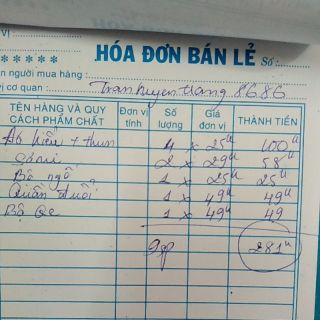 vị :
***** HÓA ĐƠN BÁN LẺ Số :
n người mua hàng :
vị cơ quan : Tran huyen trang 8686
TÊN HÀNG VÀ QUY CÁCH PHẨM CHẤT Đơn vị tính Số lượng Giá đơn vị THÀNH TIỀN
Áo kiểu + thun 4 x 25k 100k
2 x 29k 58k
Bộ ngố 1 x 25k 25k
Quần đuôi 1 x 49k 49k
Bộ 1 x 49k 49
9sp 281k